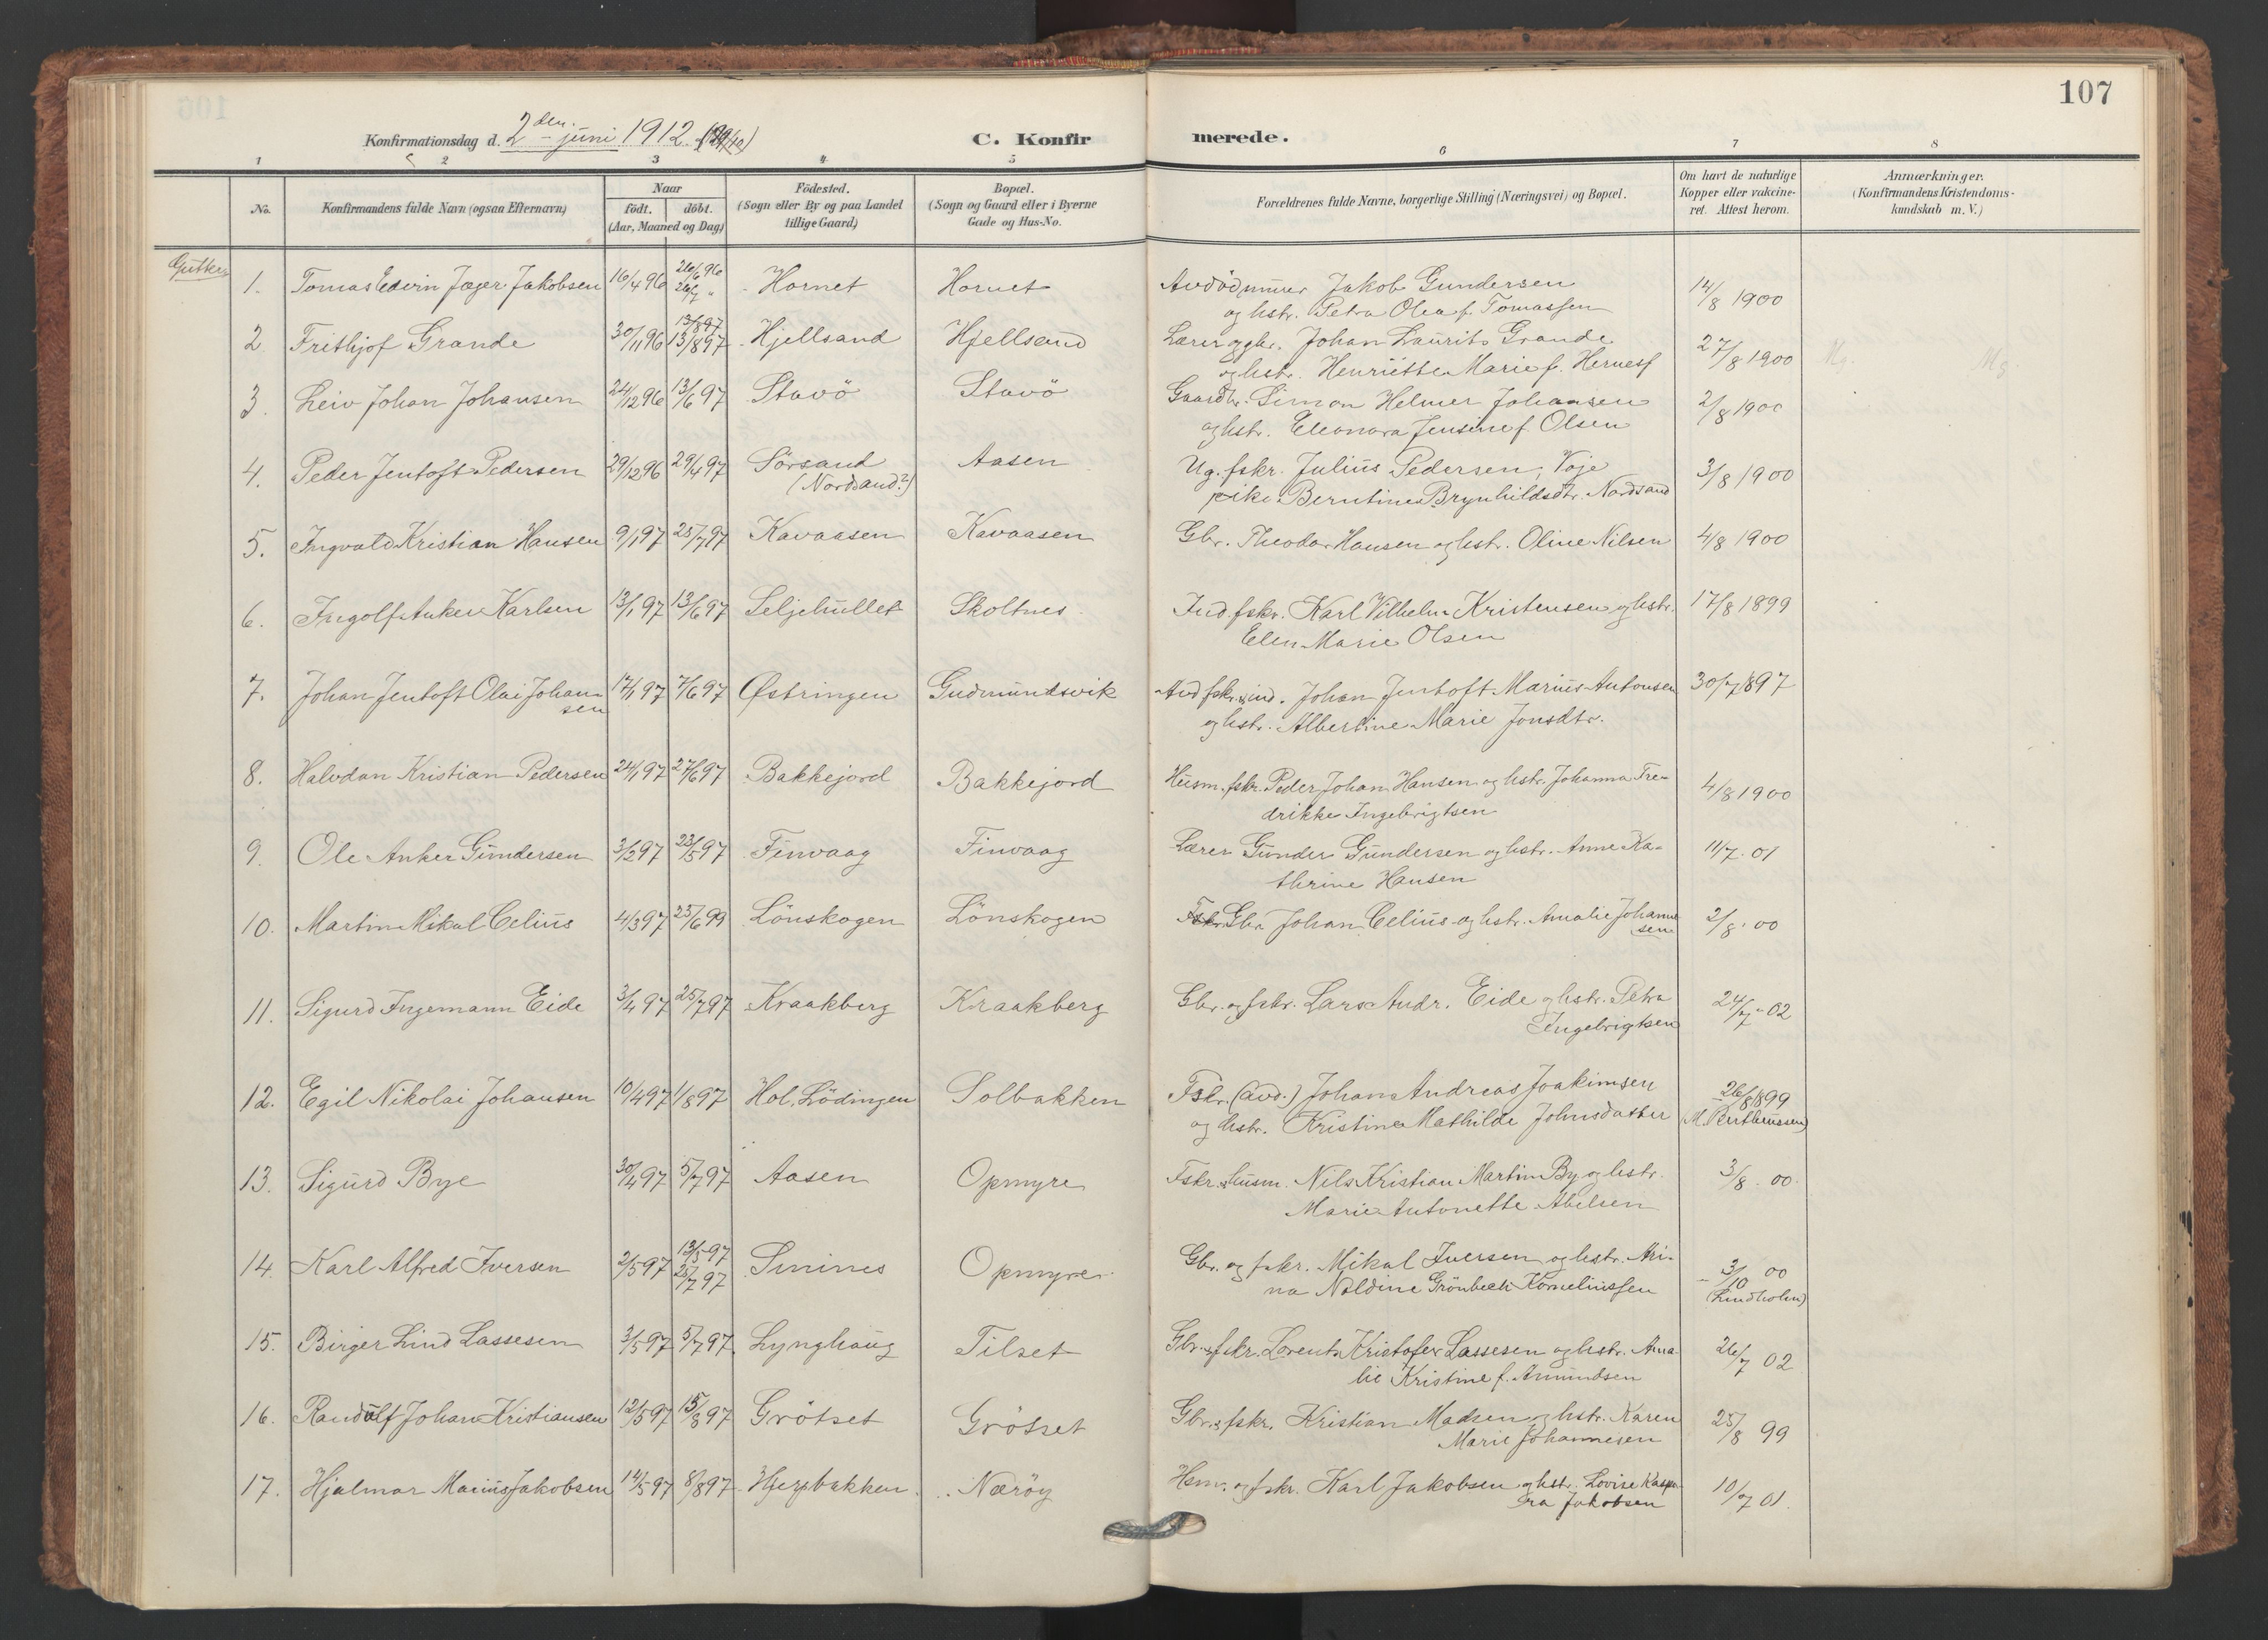 107
Konfirmationsdag d. 2den juni 1912.
C. Konfirmerede.
1 2 3 4 5 6 7 8
No.
Konfirmandens fulde Navn (ogsaa Efternavn)
Naar
født. døbt.
(Aar, Maaned og Dag)
Fødested.
(Sogn eller By og paa Landet
tillige Gaard)
Bopæl.
(Sogn og Gaard eller i Byerne
Gade og Hus-No.
Forældrenes fulde Navne, borgerlige Stilling (Næringsvei) og Bopæl.
Om havt de naturlige
Kopper eller vakcine-
ret. Attest herom.
Anmærkninger.
(Konfirmandens Kristendoms-
kundskab m. V.)
Gutter
1. Tomas Edvin Jæger Jakobsen 16/4 96 26/6 96 26/7 " Hornet Hornet Jakob Gundersen 14/8 1900
og hstr. Petra Olea f. Tomassen
2 Frithjof Grande 30/11 96 13/8 97 13/8 97 Hjellsand Hjellsand Lærer og gbr. Johan Laurits Grande 27/8 1900 Mg. Mg.
og hstr. Henriette Marie f. Hernes
3. Leiv Johan Johansen 24/12 96 13/6 97 Stavö Stavö Gaardbr. Simon Helmer Johansen 2/8 1900
og hstr. Eleonora Jensine f. Olsen
4. Peder Jentoft Pedersen 29/12 96 29/4 97 Sörsand Aasen Ug. fskr. Julius Pedersen, Vaje 3/8 1900
(Nordsand?) pike Berntine Brynhildsdtr. Nordsand
5. Ingvald Kristian Hansen 9/1 97 25/7 97 Kavaasen Kavaasen Gbr. Theodor Hansen og hstr. Oline Nilsen 4/8 1900
6. Ingolf Anker Karlsen 13/1 97 13/6 97 Seljehullet Skoltnes Ind. fskr. Karl Vilhelm Kristensen og hstr. 17/8 1899
Elen Marie Olsen
7. Johan Jentoft Olai Johan- 17/1 97 7/6 97 Østringen Gudmundsvik fskr. & ind. Johan Jentoft Marius Antonsen 30/7 1897
sen og hstr. Albertine Marie Jonsdtr.
8. Halvdan Kristian Pedersen 24/1 97 27/6 97 Bakkejord Bakkejord Husm. fskr. Peder Johan Hansen og hstr. Johanna Fre- 4/8 1900
drikke Ingebrigtsen
9. Ole Anker Gundersen 3/2 97 23/5 97 Finvaag Finvaag Lærer Gunder Gundersen og hstr. Anne Ka- 11/7. 01
thrine Hansen
10. Martin Mikal Celius 4/3 97 25/6 99 Lönskogen Lönskogen Gbr. Johan Celius og hstr. Amalie Johanne- 2/8. 00
sen
11. Sigurd Ingemann Eide 3/4 97 25/7 97 Kraakberg Kraakberg Gbr. og fskr. Lars Andr. Eide og hstr. Petra 24/7 - 02
Ingebrigtsen
12. Egil Nikolai Johansen 10/4 97 1/8 97 Hol, Lödingen Solbakken Fskr. (avd.) Johan Andreas Joakimsen 26/8 1899
og hstr. Kristine Mathilde Johnsdatter (M. Bertheussen)
13. Sigurd Bye 30/4 97 5/7 97 Aasen Opmyre Fskr. & husm. Nils Kristian Martin By og hstr. 3/8. 00.
Marie Antonette Abelsen
14. Karl Alfred Iversen 2/5 97 13/5 97 25/7 97 Smines Opmyre Gbr. og fskr. Mikal Iversen og hstr. Ari- 3/10 00
na Noldine Grönbech Korneliussen (Lindholm)
15. Birger Lind Lassesen 3/5 97 5/7 97 Lynghaug Tilset Gbr. & fskr. Lorents Kristofer Lassesen og hstr. Ama- 26/7 02
lie Kristine f. Amundsen
16. Randulf Johan Kristiansen 12/5 97 15/8 97 Grötset Grötset Gbr. & fskr. Kristian Madsen og hstr. Karen 25/8 99
Marie Johannesen
17. Hjalmar Marius Jakobsen 14/5 97 8/8 97 Hjerpbakken Næröy Hsm. og fskr. Karl Jakobsen og hstr. Lovise Kaspa- 10/7 01.
ra Jakobsen